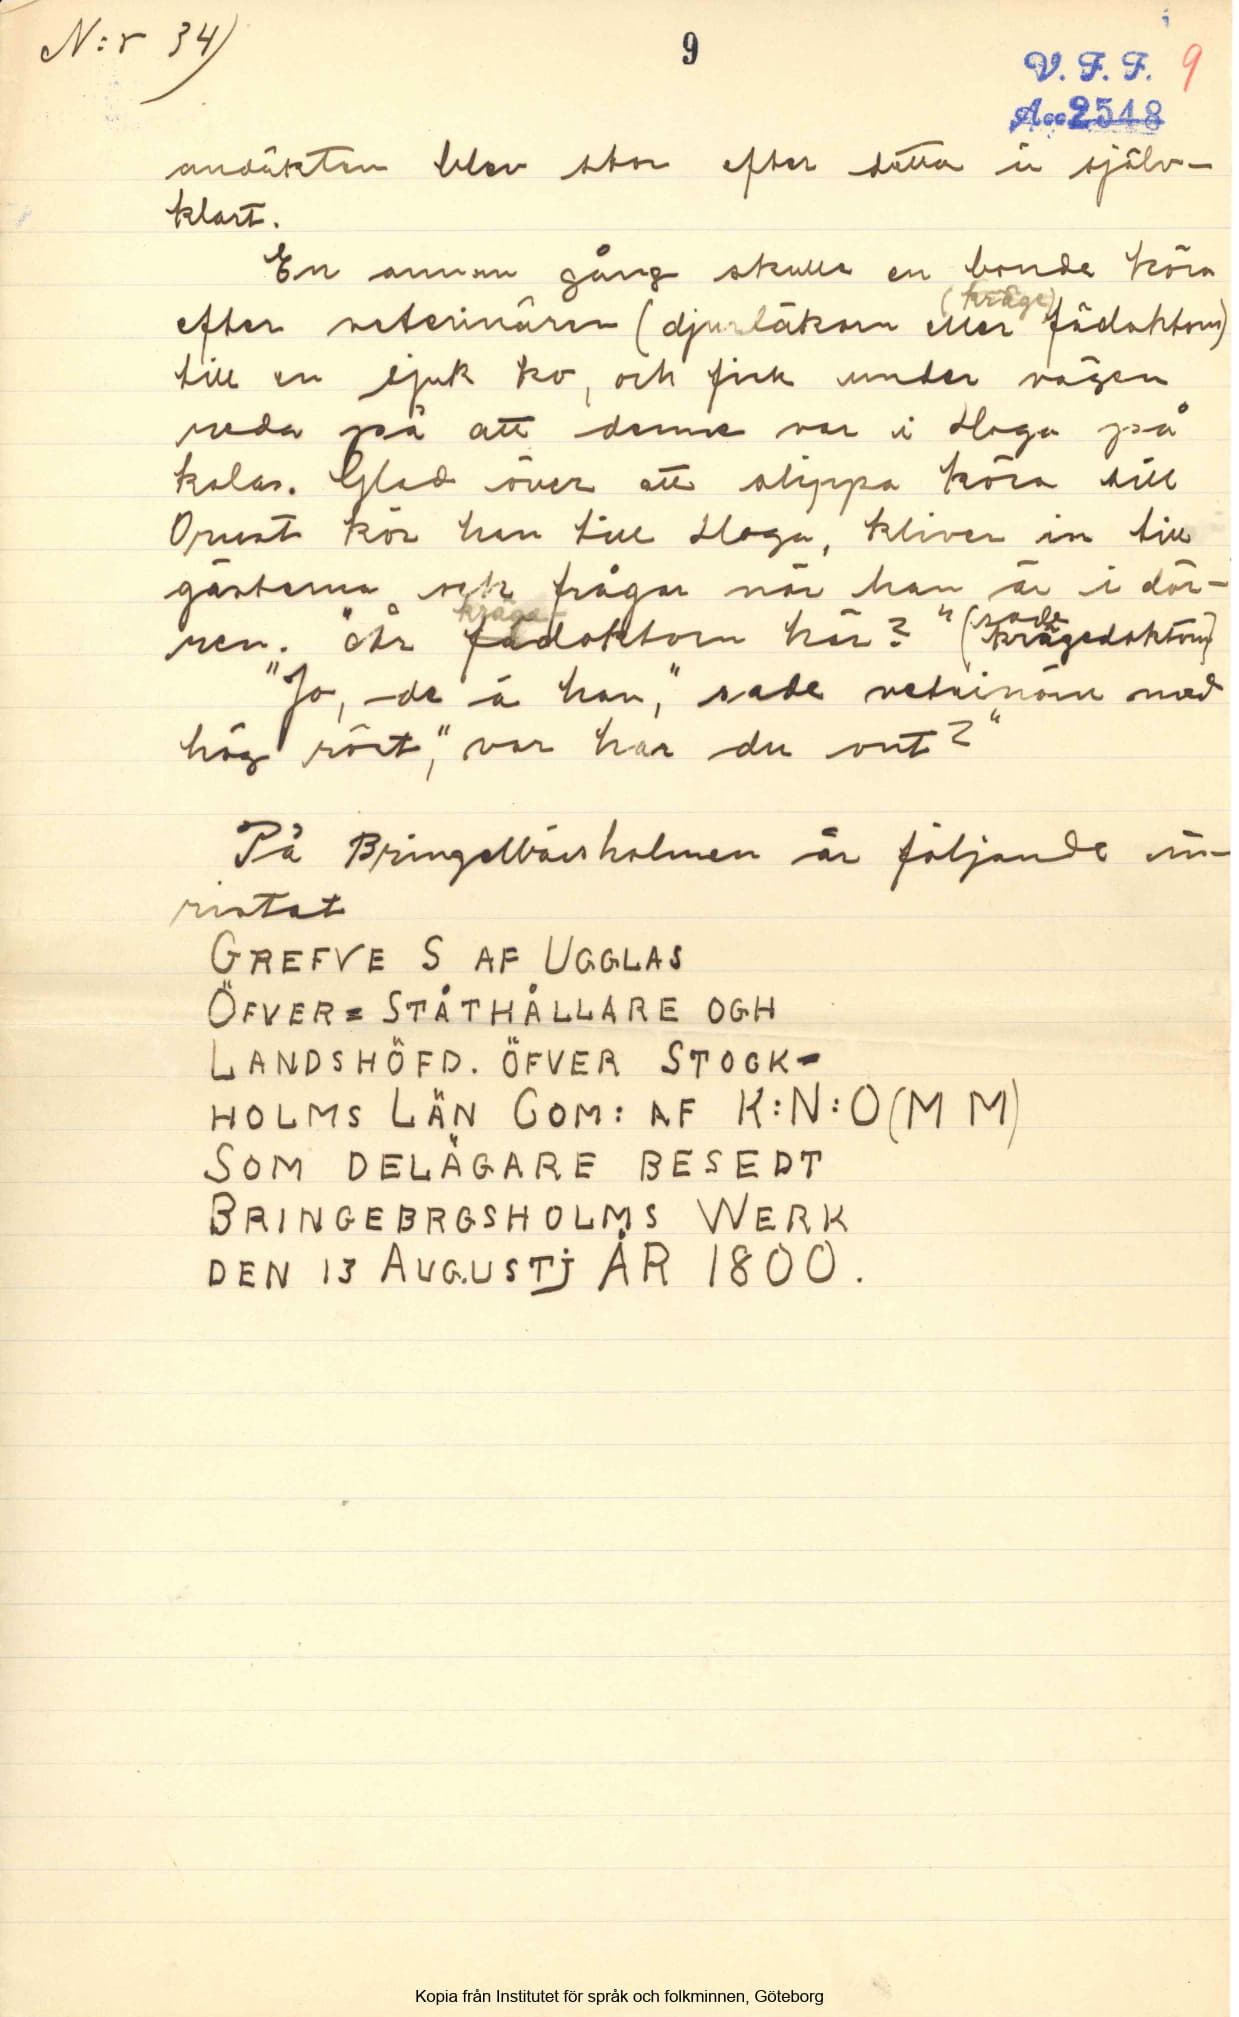 N:r 34)
9
V. F. F. 9
Acc 2548
andäkten blev stor efter detta är själv-
klart.
En annan gång skulle en bonde köra
(kräge)
efter veterinären (djurläkarn eller fädoktorn)
till en sjuk ko, och fick under vägen
reda på att denne var i Hoga på
kalas. Glad över att slippa köra till
Orust kör han till Hoga, kliver in till
gästerna och frågar när han är i dör-
kräge-
ren. "Är fädoktorn här?" (sade
krägedoktorn)
"Jo, de ä han," sade veterinären med
hög röst, "var har du ont?"
På Bringelbärsholmen är följande in-
ristat
GREFVE S AF UGGLAS
ÖFVER = STÅTHÅLLARE OGH
LANDSHÖFD. ÖFVER STOGK-
HOLMS LÄN COM: AF K:N:O (M M)
SOM DELÄGARE BESEDT
BRINGEBRGSHOLMS WERK
DEN 13 AUGUSTJ ÅR 1800.
Kopia från Institutet för språk och folkminnen, Göteborg